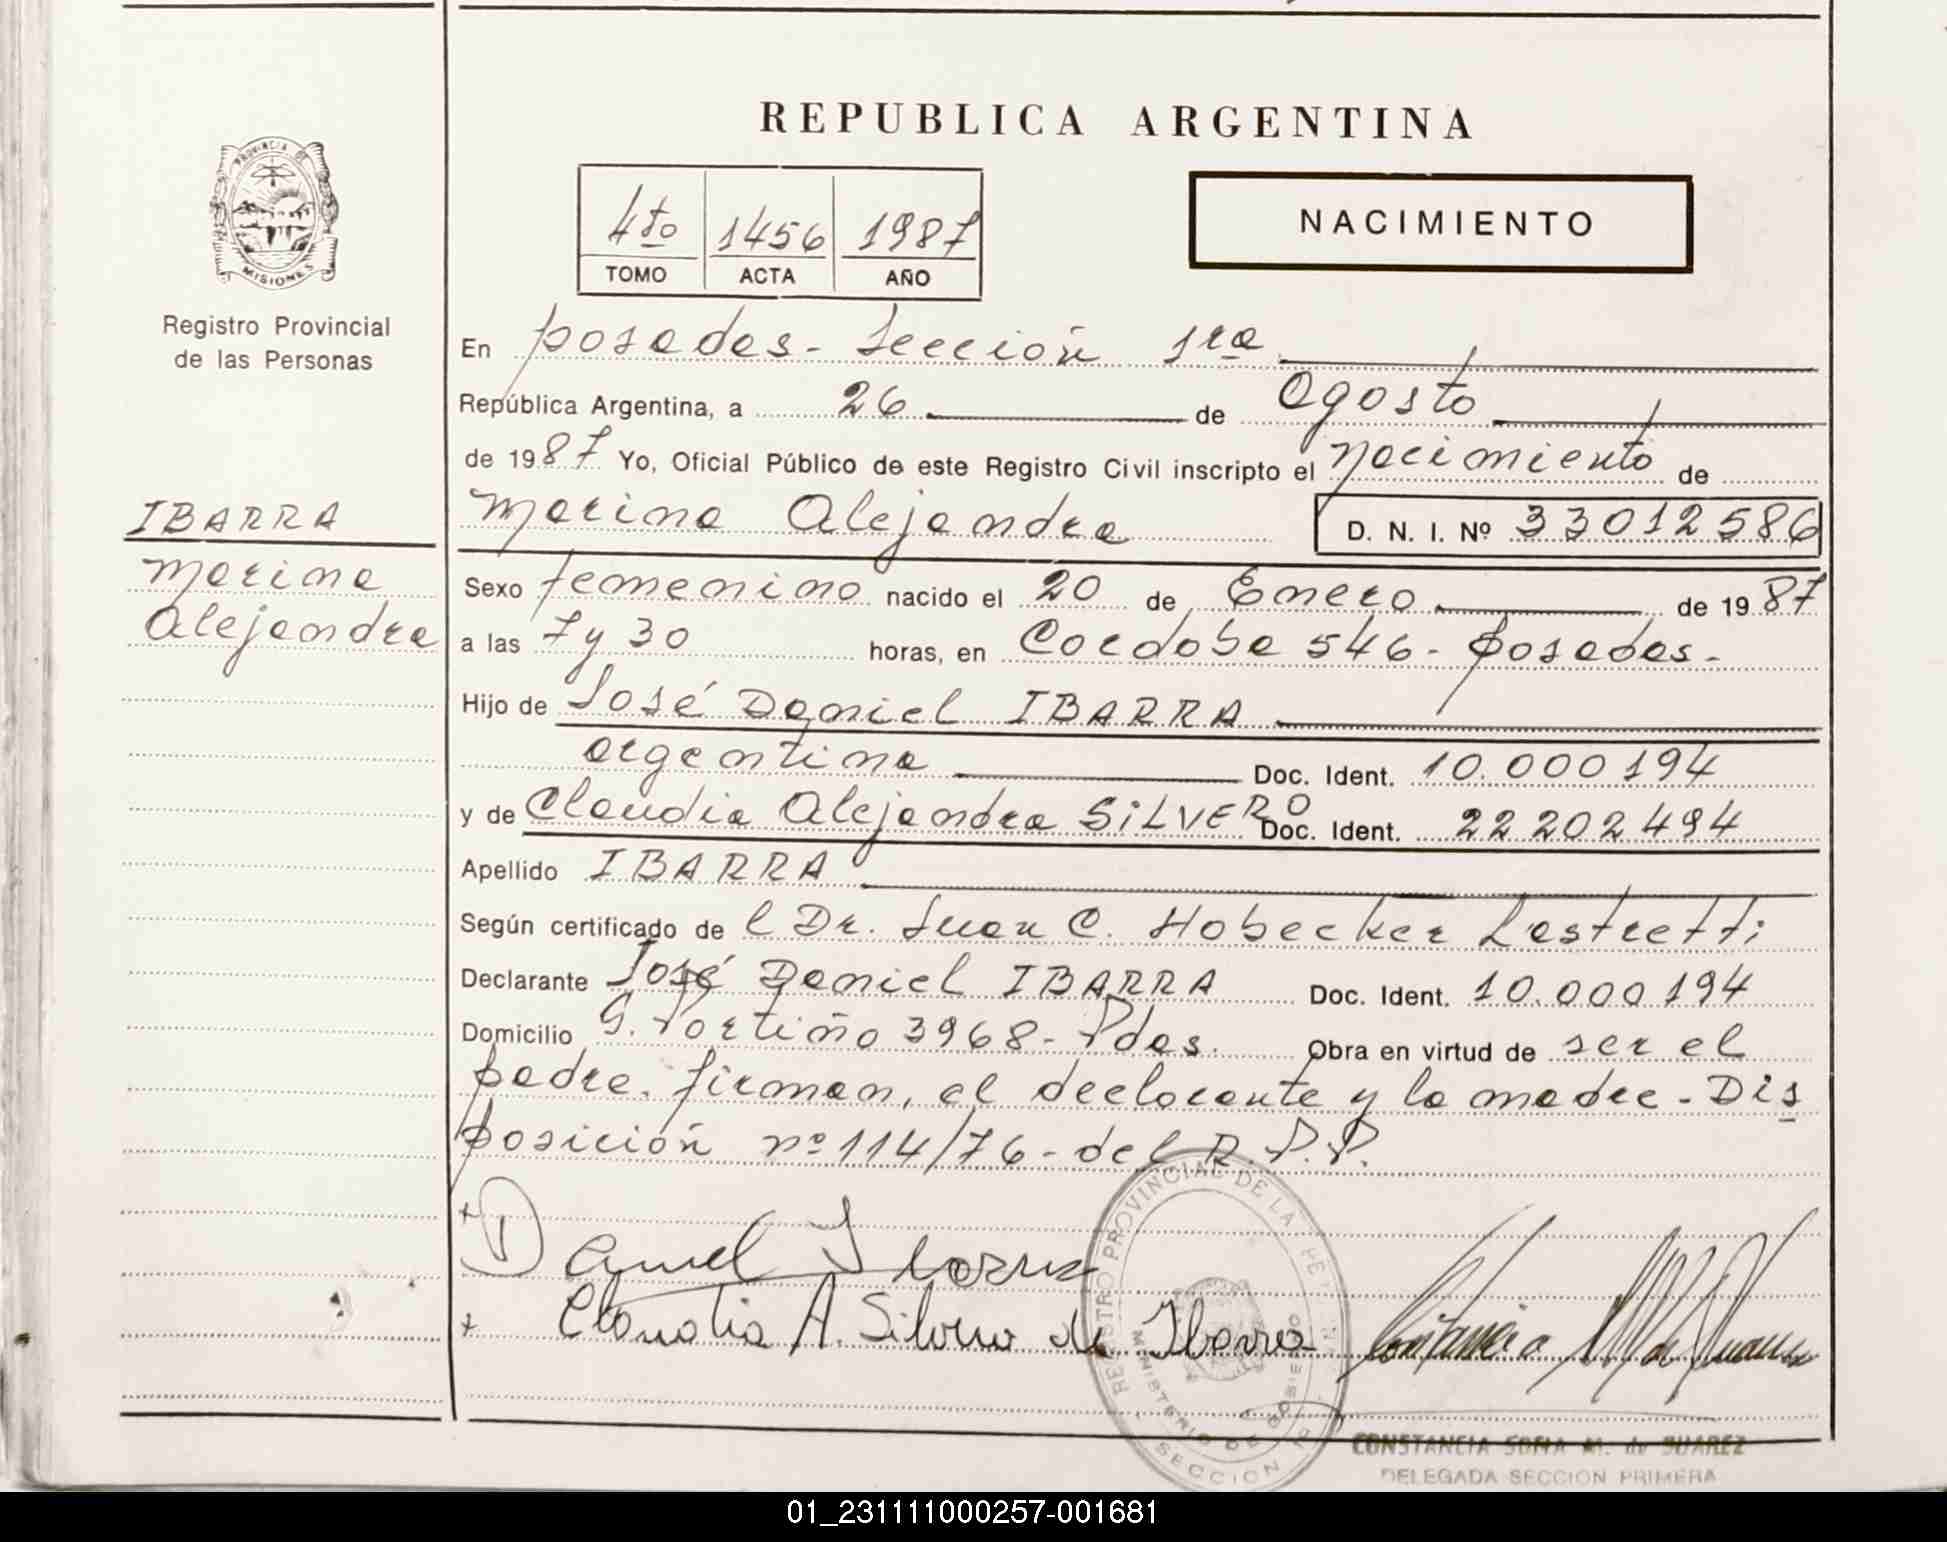 REPUBLICA ARGENTINA
PROVINCIA DE
MISIONES
Registro Provincial
de las Personas
4to 1456 1987
TOMO ACTA AÑO
NACIMIENTO
En Posadas - Sección 1ra
República Argentina, a 26 de Agosto
de 1987 Yo, Oficial Público de este Registro Civil inscripto el nacimiento de
IBARRA
Marina Alejandra D. N. I. Nº 33012586
Marina
Alejandra
Sexo femenino nacido el 20 de Enero de 1987
a las 7 y 30 horas, en Cordoba 546 - Posadas -
Hijo de José Daniel IBARRA
argentina Doc. Ident. 10.000194
y de Claudia Alejandra SiLVERO Doc. Ident. 22202494
Apellido IBARRA
Según certificado de l Dr. Juan C. Hobecker Lastretti
Declarante José Daniel IBARRA Doc. Ident. 10.000194
Domicilio G. Portiño 3968 - Pdas. Obra en virtud de ser el
padre. firman, el declarante y la madre - Dis
posición nº 114/76 - del R.P.P.
Daniel Ibarra
Claudia A. Silvero de Ibarra
REGISTRO PROVINCIAL DE LA
MINISTERIO DE GOBIERNO
SECCION
CONSTANCIA SOFIA M. de SUAREZ
DELEGADA SECCION PRIMERA
01_231111000257-001681